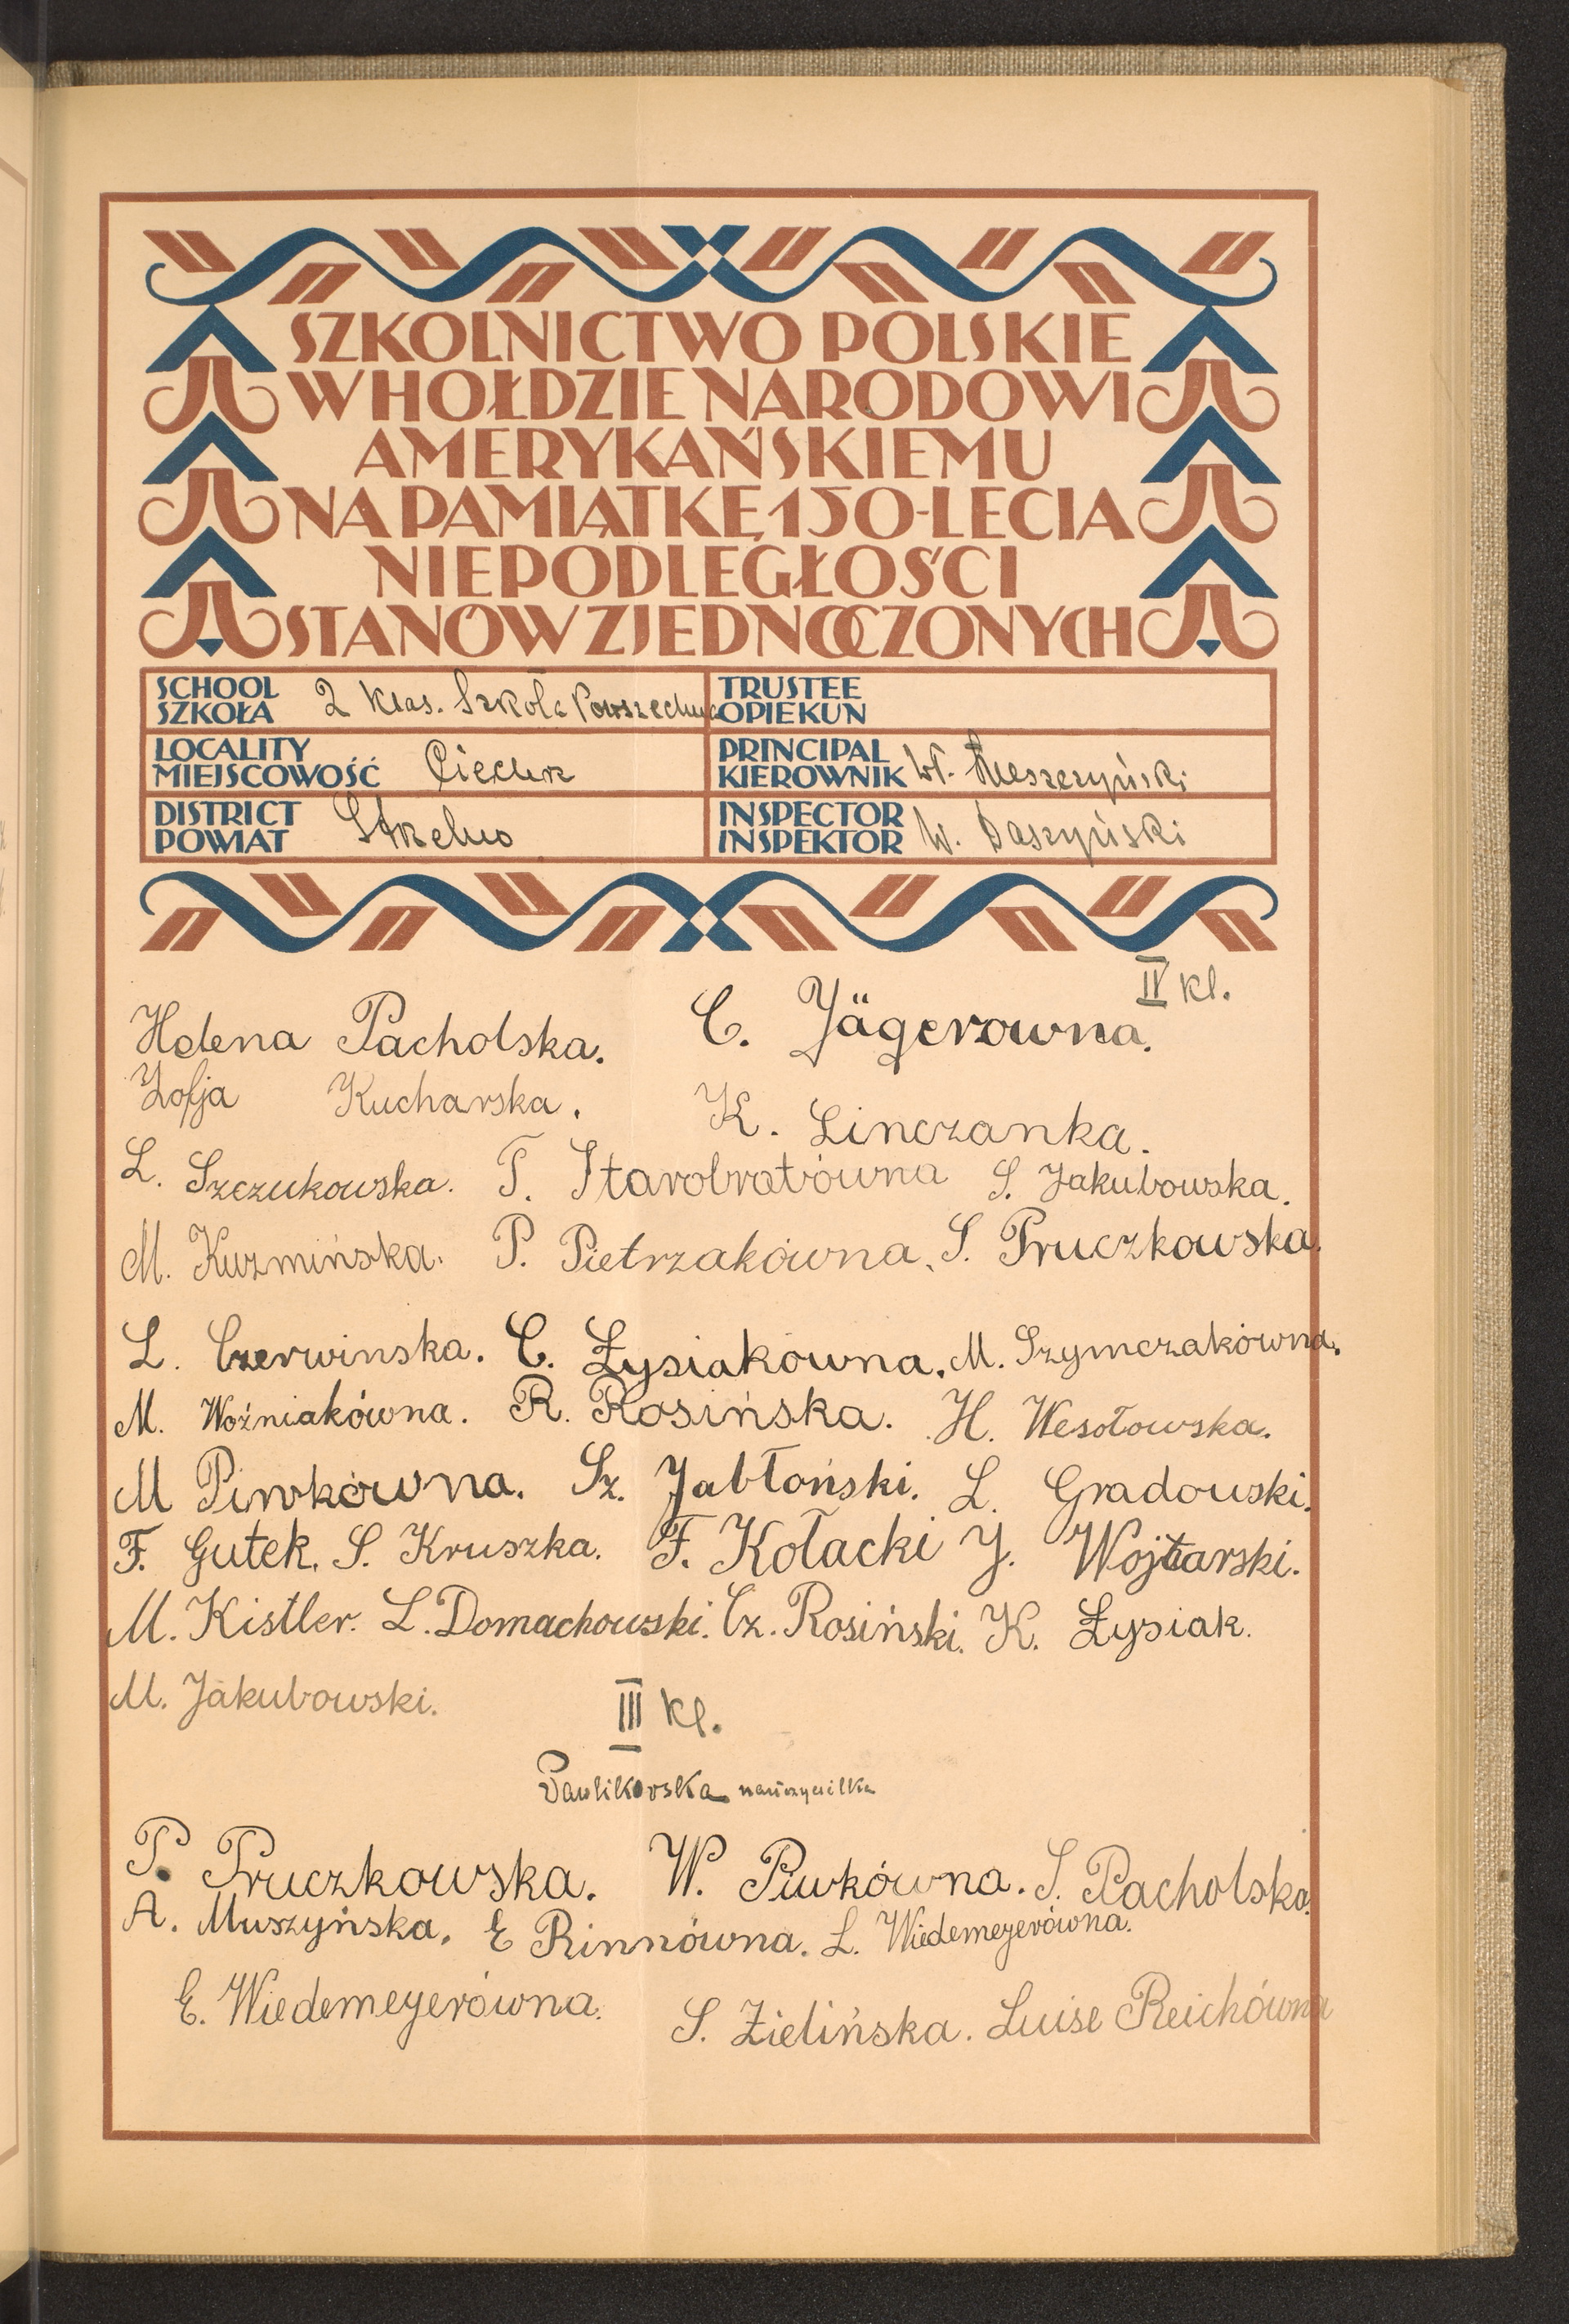 SZKOLNICTWO POLSKIE
W HOŁDZIE NARODOWI
AMERYKAŃSKIEMU
NA PAMIĄTKĘ 150-LECIA
NIEPODLEGŁOŚCI
STANÓW ZJEDNOCZONYCH
SCHOOL
SZKOŁA 2 Klas. Szkoła Powszechna
TRUSTEE
OPIEKUN
LOCALITY
MIEJSCOWOŚĆ Ciechrz
PRINCIPAL
KIEROWNIK Wł.
DISTRICT
POWIAT Strzelno
INSPECTOR
INSPEKTOR W. Daszyński
IV kl.
Helena Pacholska. C. Jägerowna.
Zofja Kucharska. K. Linczanka.
L. Szczukowska. T. Starobratówna S. Jakubowska.
M. Kuzmińska. P. Pietrzakówna. S. Pruczkowska.
L. Czerwinska. C. Łysiakówna. M. Szymczakówna.
M. Woźniakówna. R. Rosińska. H. Wesołowska.
M Piwkówna. Sz. Jabłoński. L. Gradowski.
F. Gutek. S. Kruszka. F. Kołacki J. Wojtarski.
M. Kistler. L. Domachowski. Cz. Rosiński. K. Łysiak.
M. Jakubowski.
III kl.
Pawlikowska nauczycielka
P. Pruczkowska. W. Piwkówna. S. Pacholska.
A. Muszyńska. E Rinnówna. L. Wiedemeyerówna.
E. Wiedemeyerówna. S. Zielińska. Luise Reichówna